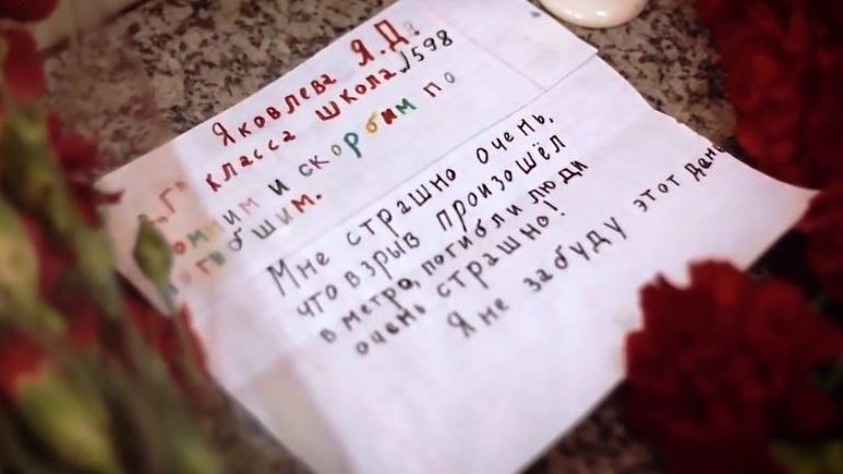 Яковлева Я.Д.
2„Г" класса школа №598
Помним и скорбим по
погибшим.
Мне страшно очень,
что взрыв произошёл
в метро, погибли люди
очень страшно!
Я не забуду этот день